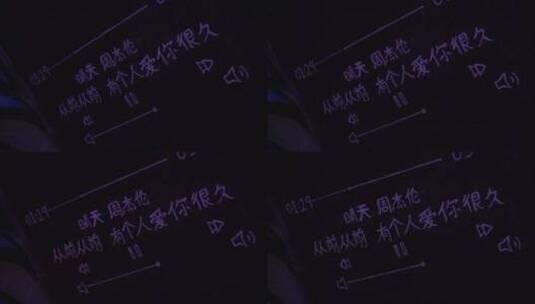 01:29
晴天 周杰伦
从前从前 有个人爱你很久
01:29
晴天 周杰伦
从前从前 有个人爱你很久
01:29
晴天 周杰伦
从前从前 有个人爱你很久
01:29
晴天 周杰伦
从前从前 有个人爱你很久